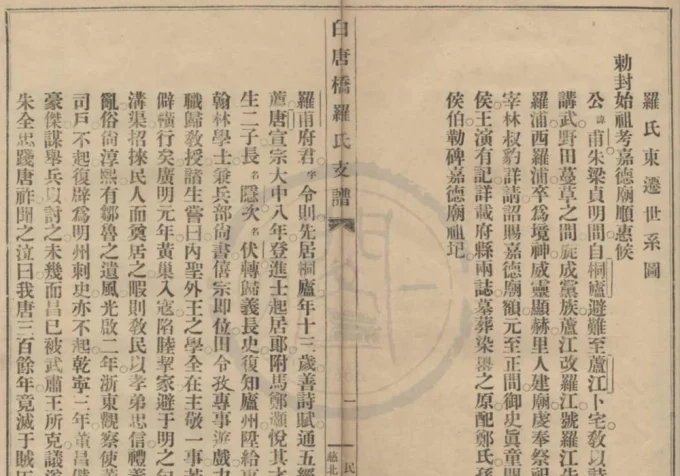 羅氏東遷世系圖
勅封始祖考嘉德廟順惠侯
公諱甫朱梁貞明間自桐廬避難至蘆江卜宅敎以詩
講武野田蔓草之間旋成黨族蘆江改羅江號羅江先
羅浦西羅浦卒爲境神威靈顯赫里人建廟虔奉祭祀
宰林叔豹詳請詔賜嘉德廟額元至正間御史眞童
侯王演有記詳載府縣兩誌墓葬染嶴之原配鄭氏孫
侯伯勒碑嘉德廟祖圯
白唐橋羅氏支譜
一
羅甫府君字令則先居桐廬年十三歲善詩賦通五經
薦唐宣宗大中八年登進士起居郎附馬鄭顥悅其才
生二子長名隱次名伏轉歸義長史復知廬州陞給事
翰林學士兼兵部尙書僖宗卽位田令孜專事遊戲
職歸敎授諸生嘗曰內聖外王之學全在主敬一事
僻橫行矣廣明元年黃巢入寇陷睦挈家避于明之
溝渠招徠民人而奠居之暇則敎民以孝弟忠信禮義
亂俗尙淳熙有鄒魯之遺風光啟二年浙東觀察使
司戶不起復辟爲明州刺史亦不起乾寧三年董昌
豪傑謀舉兵以討之未幾而昌已被武肅王所克議
朱全忠踐唐祚聞之泣曰我唐三百餘年竟滅于賊